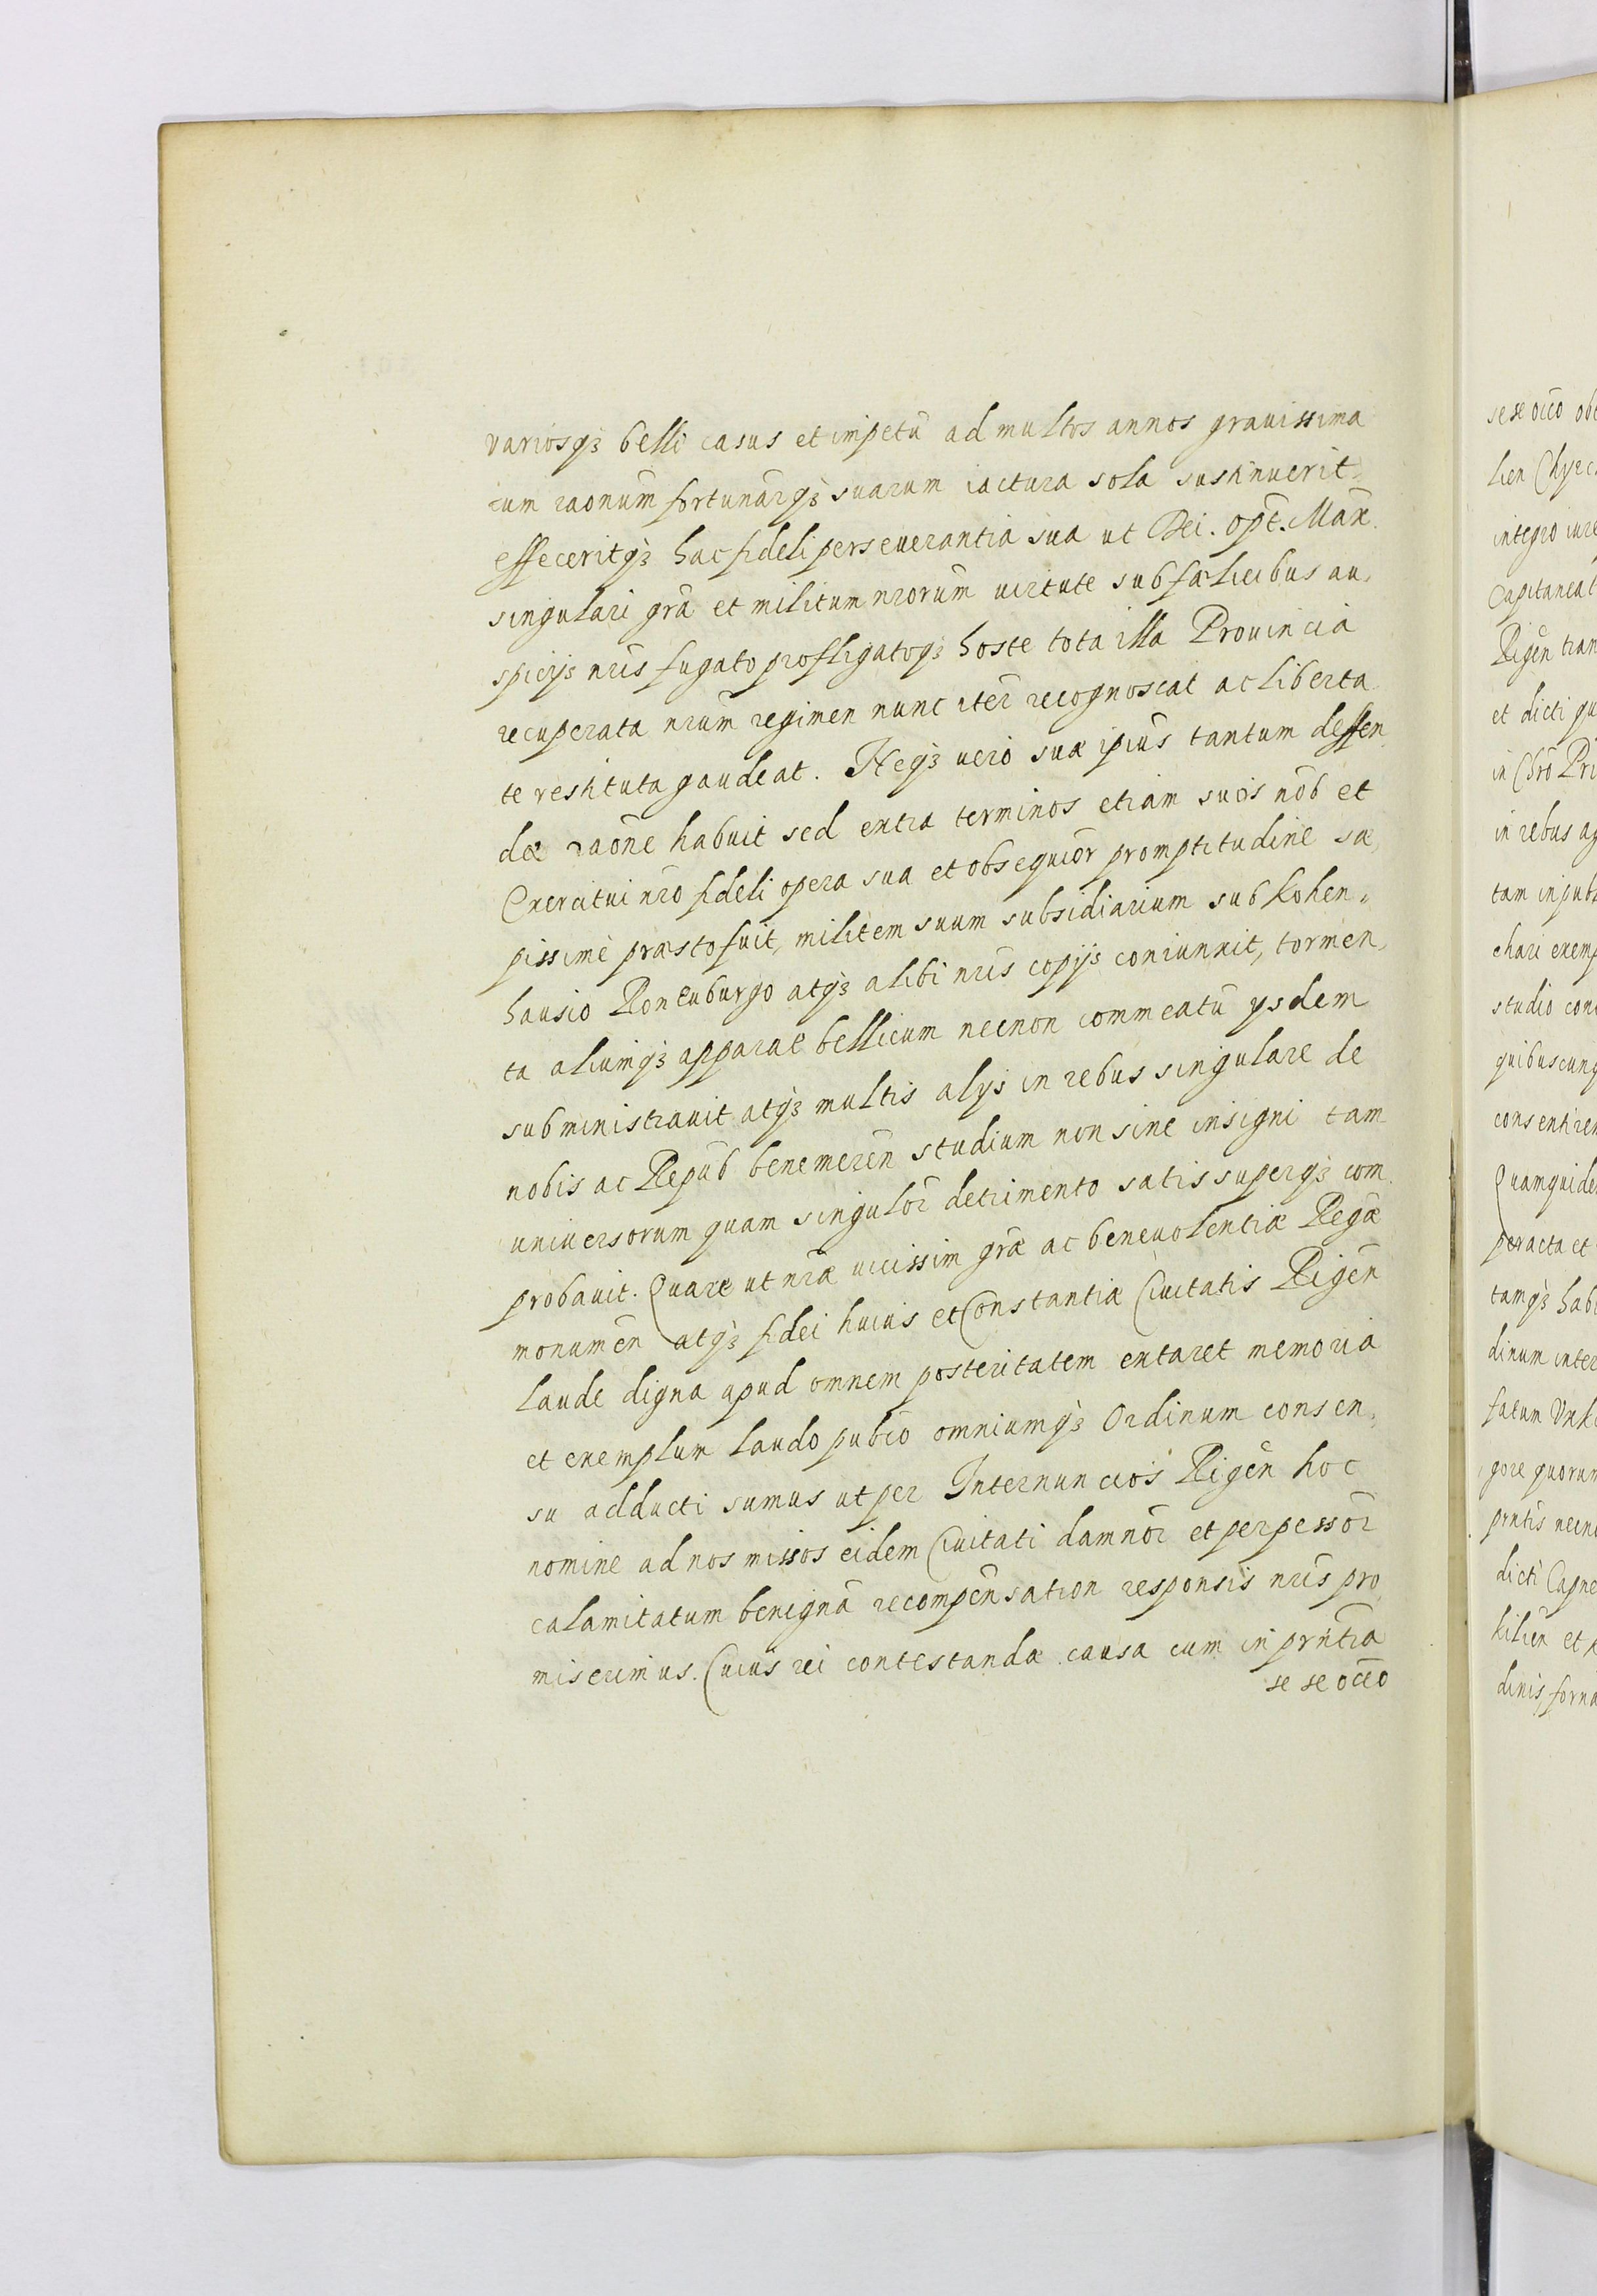 variosqꝫ belli casus et impetū ad multos annos grauissima
cum raonum fortunarqꝫ suarum iactura sola sustinuerit,
effeceritqꝫ hac fideli perseuerantia sua ut Dei. Opt. Max.
singulari grā et militum nrorum uirtute sub fælicibus au,
spicijs nris fugato profligatoqꝫ hoste tota illa Prouincia
recuperata nrum regimen nunc iter recognoscat ac liberta
te restituta gaudeat. Neqꝫ vero suæ ipius tantum deffen
dæ raone habuit sed extra terminos etiam suos nob et
Exercitui nro fideli opera sua et obsequior promptitudine sæ,
pissime præsto fuit, militem suum subsidiarium sub Kohen,
hausio Ronenburgo atqꝫ alibi nris copijs coniunxit, tormen,
ta aliumqꝫ apparat bellicum necnon commeatū ysdem
subministrauit atqꝫ multis alys in rebus singulare de
nobis ac Repub benemeren studium non sine insigni tam
universorum quam singulor detrimento satis superqꝫ com
probauit. Quare ut nræ uicissim græ ac beneuolentiæ Regæ
monumen atqꝫ fidei huius et Constantiæ Ciuitatis Rigen
laude digna apud omnem posteritatem extaret memoria
et exemplum laudo pubco omniumqꝫ Ordinum consen,
su adducti sumus ut per Internuncios Rigen hoc
nomine ad nos missos eidem Ciuitati damnor et perpessor
calamitatum benignā recompensation responsis nris pro
miserimus. Cuius rei contestandæ causa cum in prntia
se se occo